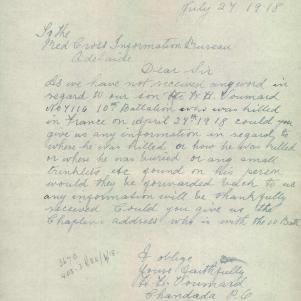 July 27 1918
To the
Red Cross Information Bureau
Adelaide
Dear Sir
As we have not received any word in
regard to our son Pte W. H. Voumard
No 4116 10th Battalion who was killed
in France on April 24th 1918 could you
give us any information in regard, to
where he was killed or how he was killed
or where he was buried or any small
trinklets etc found on his person
would they be forwarded back to us
any information will be thankfully
received Could you give us the
Chaplin address who is with the 10 Batt
I oblige
Yours faithfully
Voumard
Chandada P.O.